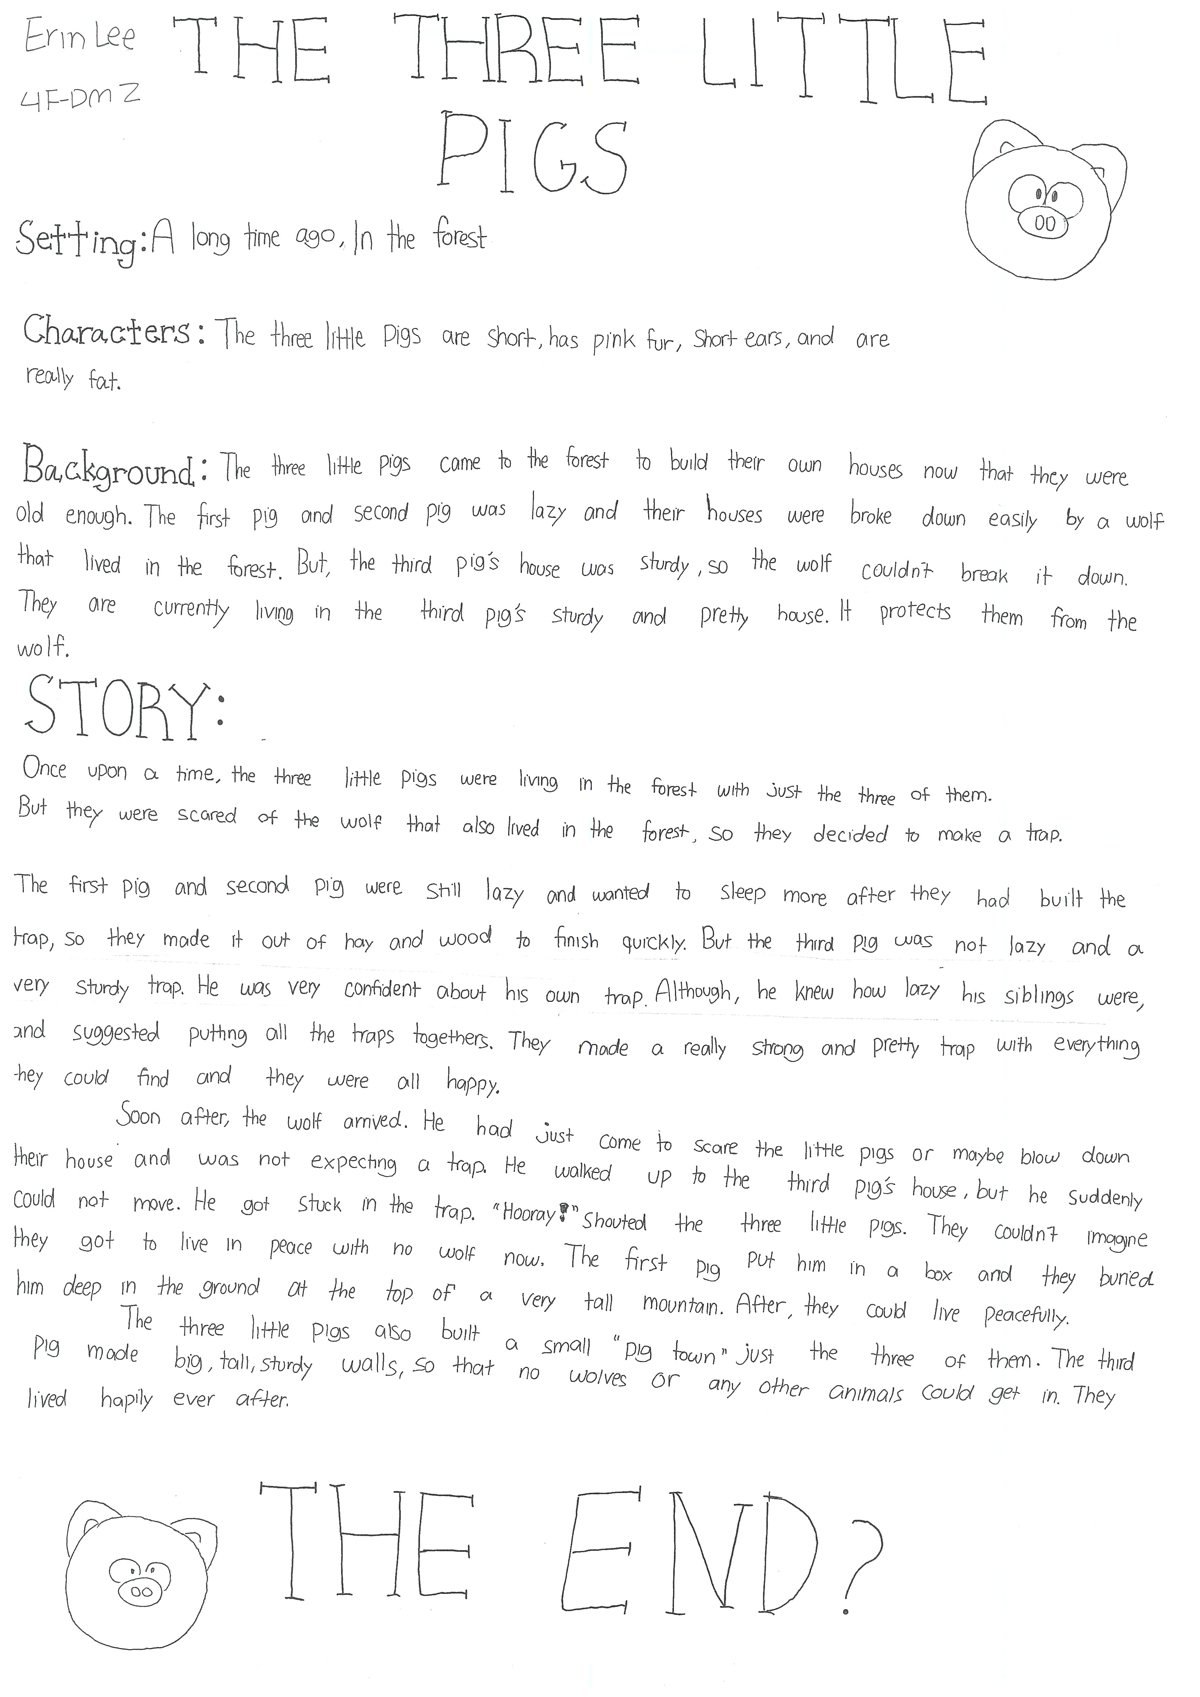 Erin Lee
4F-DM2
THE THREE LITTLE
PIGS
Setting: A long time ago, In the forest
Characters: The three little pigs are short, has pink fur, short ears, and are
really fat.
Background: The three little pigs came to the forest to build their own houses now that they were
old enough. The first pig and second pig was lazy and their houses were broke down easily by a wolf
that lived in the forest. But, the third pig's house was sturdy, so the wolf couldn't break it down.
They are currently living in the third pig's sturdy and pretty house. It protects them from the
wolf.
STORY:
Once upon a time, the three little pigs were living in the forest with just the three of them.
But they were scared of the wolf that also lived in the forest, so they decided to make a trap.
The first pig and second pig were still lazy and wanted to sleep more after they had built the
trap, so they made it out of hay and wood to finish quickly. But the third pig was not lazy and a
very sturdy trap. He was very confident about his own trap. Although, he knew how lazy his siblings were,
and suggested putting all the traps togethers. They made a really strong and pretty trap with everything
they could find and they were all happy.
Soon after, the wolf arrived. He had just come to scare the little pigs or maybe blow down
their house and was not expecting a trap. He walked up to the third pig's house, but he suddenly
could not move. He got stuck in the trap. "Hooray!" Shouted the three little pigs. They couldn't imagine
they got to live in peace with no wolf now. The first pig put him in a box and they buried
him deep in the ground at the top of a very tall mountain. After, they could live peacefully.
The three little pigs also built a small "pig town" just the three of them. The third
pig made big, tall, sturdy walls, so that no wolves or any other animals could get in. They
lived happily ever after.
THE END?